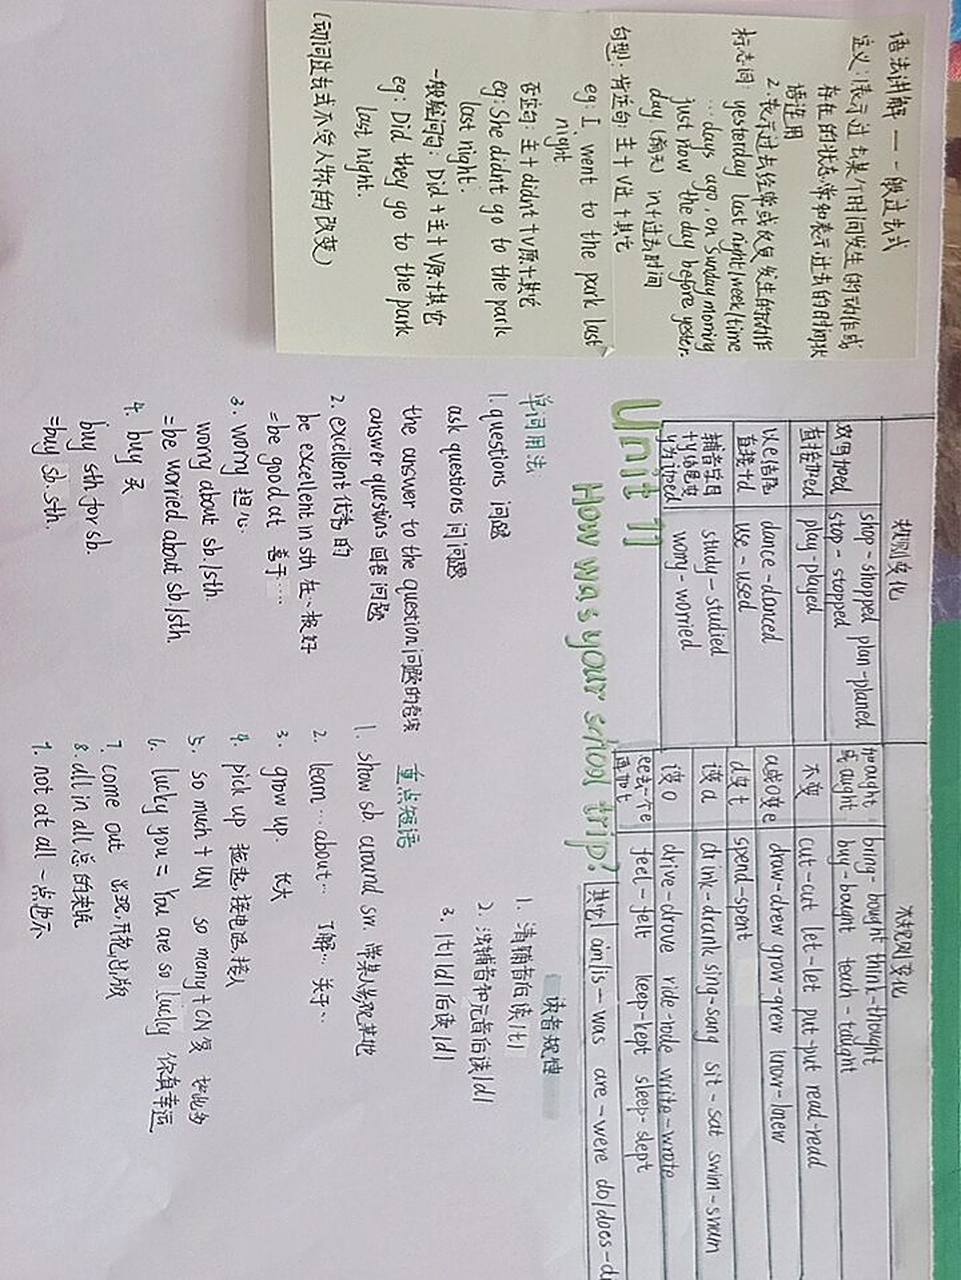 语法讲解——一般过去式
定义:1.表示过去某个时间发生的动作或
存在的状态,常和表示过去的时间状
语连用
2.表示过去经常或反复发生的动作
标志词: yesterday last night/week/time
...days ago, on Sunday morning
just now the day before yester-
day (前天) in+过去时间
句型: 肯定句: 主+V过+其它
eg: I went to the park last
night
否定句: 主+didn't+V原+其它
eg: She didn't go to the park
last night.
一般疑问句: Did+主+V原+其它
eg: Did they go to the park
last night.
(动词过去式不受人称的改变)
规则变化
双写加ed shop-shopped plan-planed
stop-stopped
直接加ed play-played
以e结尾 dance-danced
直接+d use-used
辅音字母 study-studied
+y结尾变
y为i加ed worry-worried
不规则变化
bring-bought think-thought
或aught buy-bought teach-taught
不变 cut-cut let-let put-put read-read
a或o变e draw-drew grow-grew know-knew
d变t spend-spent
i变a drink-drank sing-sang sit-sat swim-swam
i变o drive-drove ride-rode write-wrote
ee去一个e feel-felt keep-kept sleep-slept
再加t
其它 am/is-was are-were do/does-d
Unit 11
How was your school trip?
单词用法
1. questions 问题
ask questions 问问题
the answer to the question 问题的答案
answer questions 回答问题
2. excellent 优秀的
be excellent in sth 在…极好
=be good at 善于……
3. worry 担心
worry about sb/sth.
=be worried about sb/sth.
4. buy 买
buy sth for sb.
=buy sb. sth.
读音规律
1. 清辅音后读/t/
2. 浊辅音和元音后读/d/
3. /t/ /d/后读/
重点短语
1. show sb around sw. 带某人参观某地
2. learn...about... 了解…关于…
3. grow up. 长大
4. pick up 拖起,接电话,接人
5. so much+UN so many+CN复 如此多
6. lucky you = You are so lucky 你真幸运
7. come out 出现,开花,出版
8. all in all 总的来说
9. not at all 一点也不